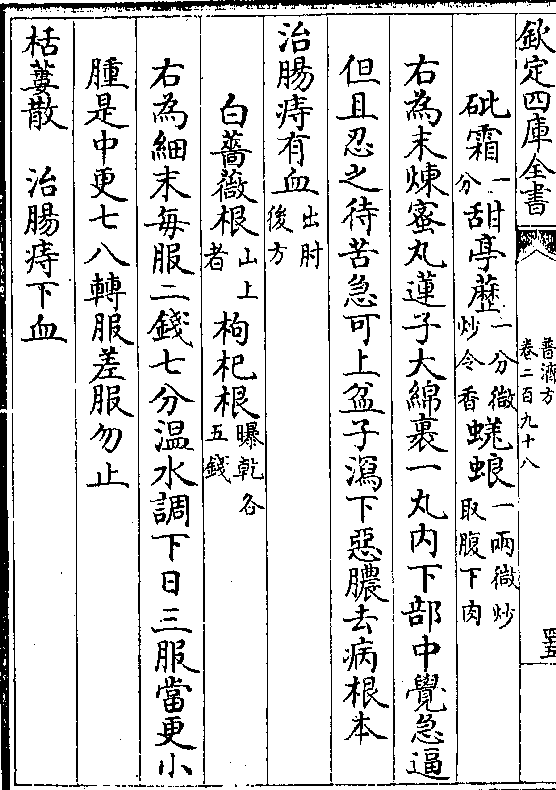 欽定四庫全書
普濟方
卷二百九十八
四五
砒霜一分甜亭藶一分微炒令香蜣蜋一兩微炒取腹下肉
右為末煉蜜丸蓮子大綿裹一丸内下部中覺急逼
但且忍之待苦急可上盆子瀉下惡膿去病根本
治腸痔有血出肘後方
白薔薇根山上者枸杞根曝乾各五錢
右為細末每服二錢七分温水調下日三服當更小
腫是中更七八轉服差服勿止
栝蔞散　治腸痔下血